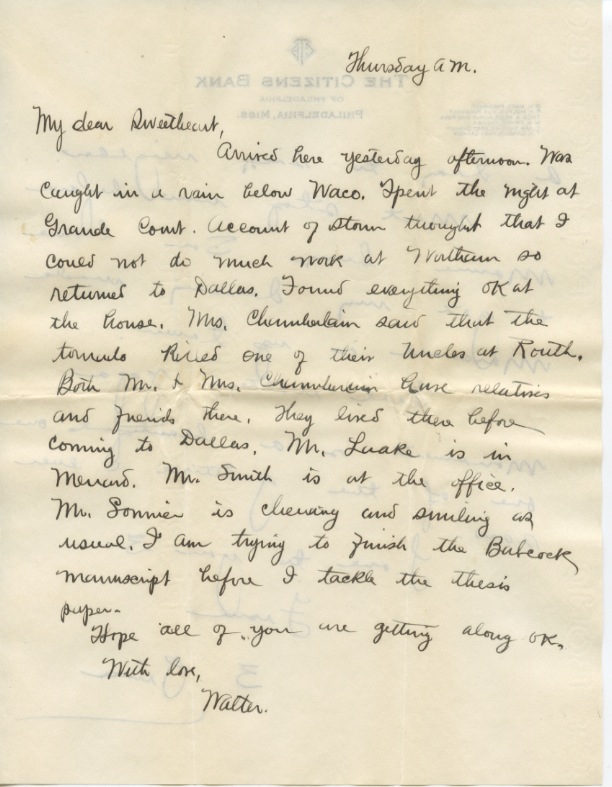 Thursday A M.
My dear Sweetheart,
Arrived here yesterday afternoon. Was
caught in a rain below Waco. Spent the night at
Grande Court. Account of storm thought that I
could not do much work at Wortham so
returned to Dallas. Found everything OK at
the house. Mrs. Chamberlain said that the
tornado killed one of their Uncles at
Both Mr. & Mrs. Chamberlain have relatives
and friends there. They lived there before
coming to Dallas. Mr. is in
Menard. Mr. Smith is at the office.
Mr. Sonnier is chewing and smiling as
usual. I am trying to finish the Babcock
manuscript before I tackle the thesis
paper.
Hope all of you are getting along OK.
With love,
Walter.
THE CITIZENS BANK
OF PHILADELPHIA
PHILADELPHIA, MISS.